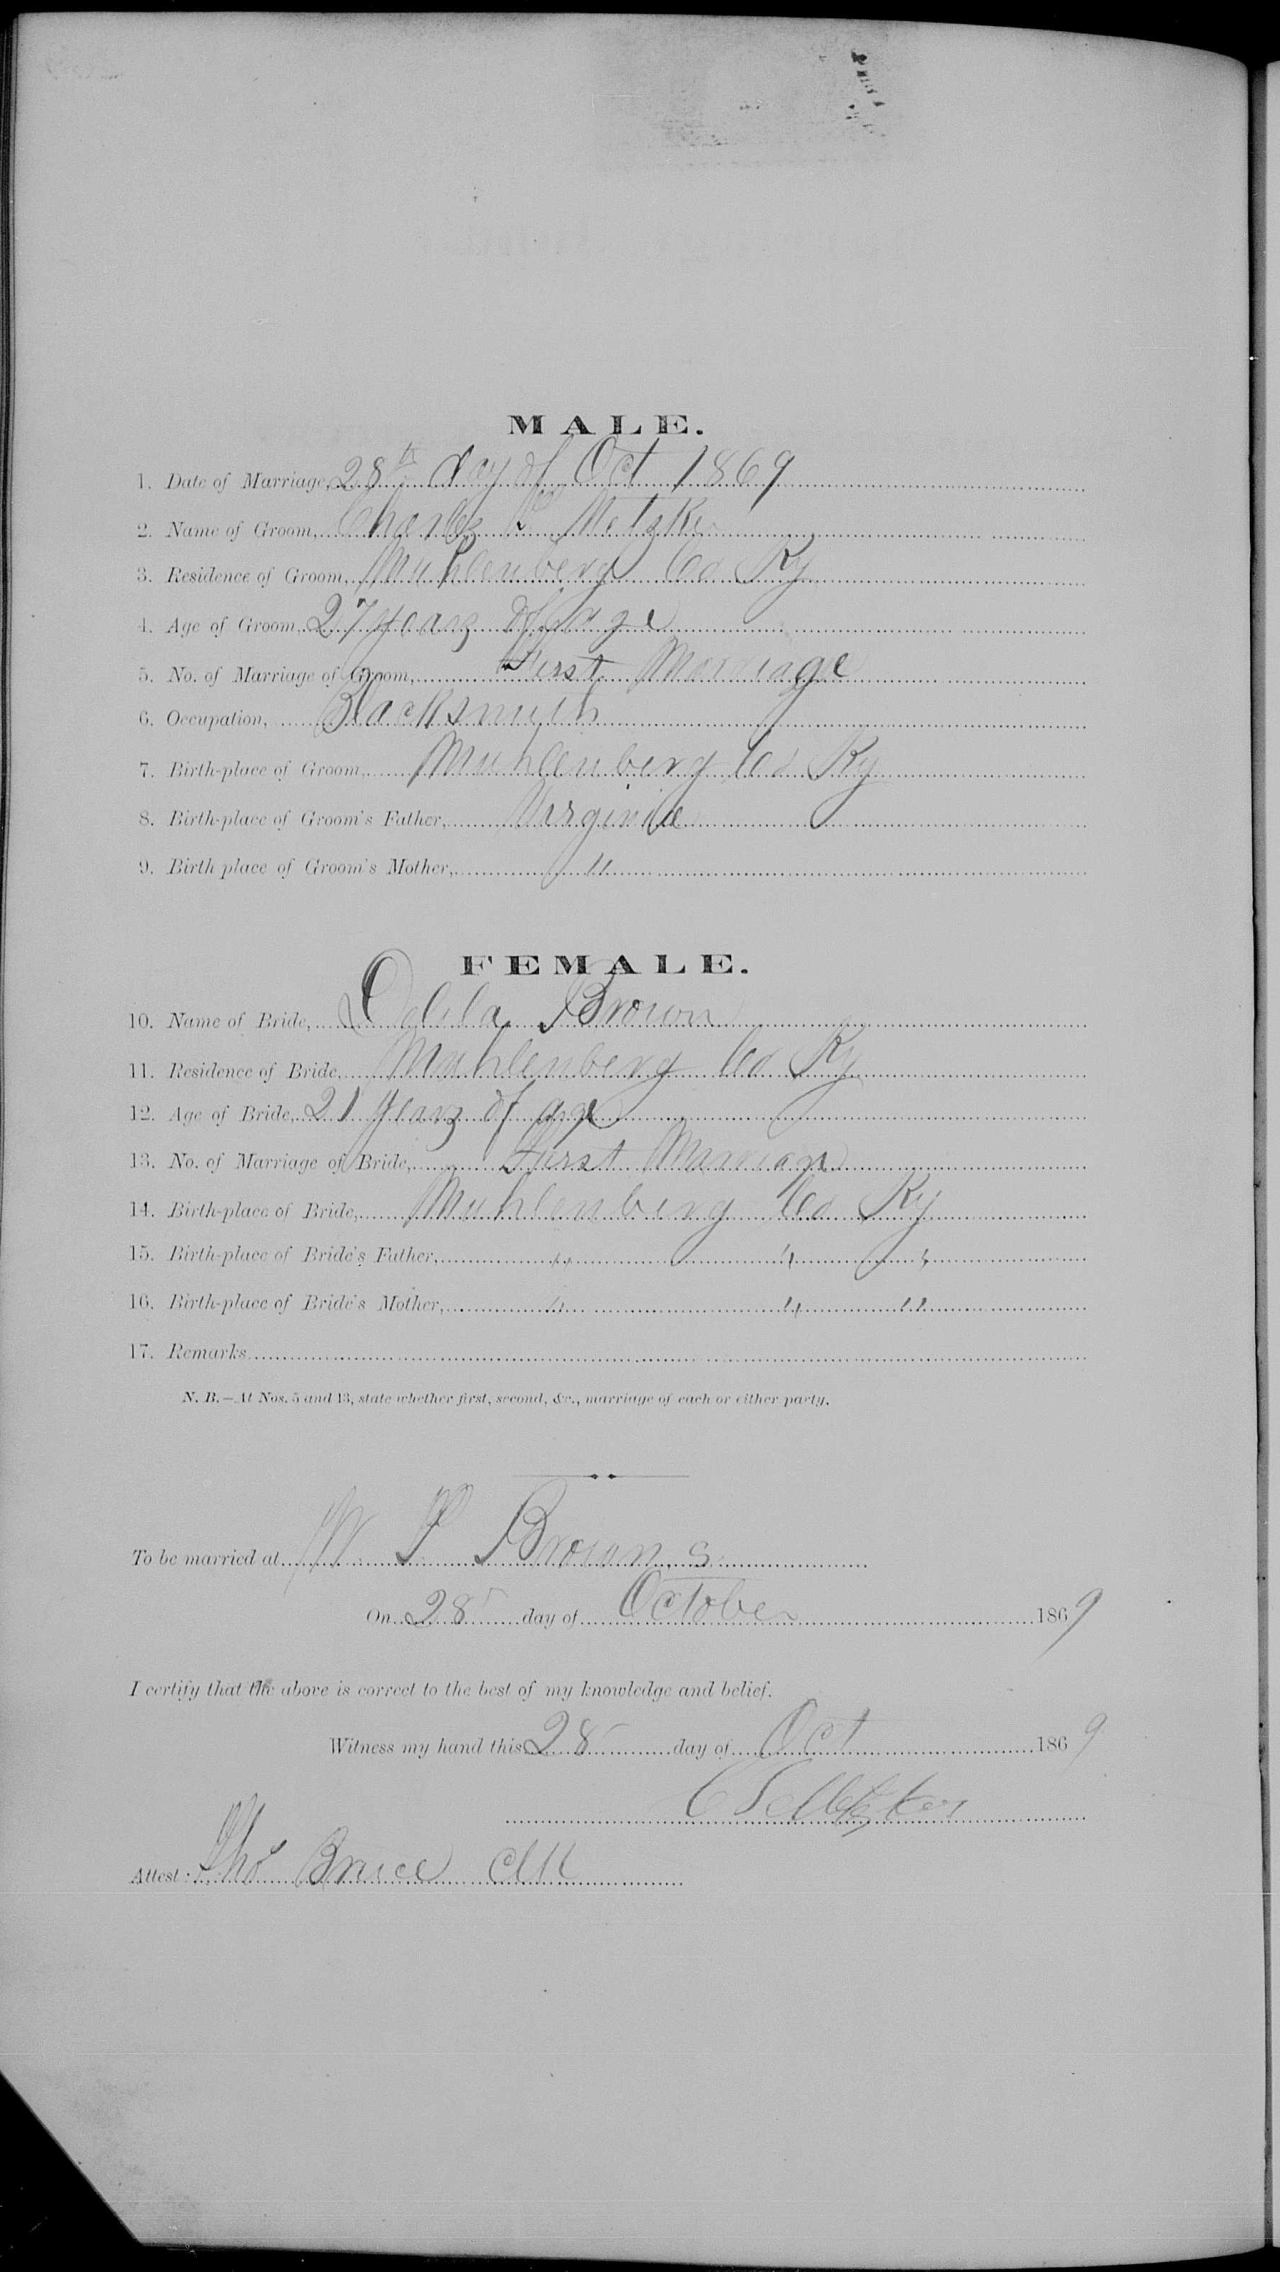 MALE.
1. Date of Marriage, 28th day of Oct 1869
2. Name of Groom, Charles Metzker
3. Residence of Groom, Muhlenberg Co Ky
4. Age of Groom, 27 years of age
5. No. of Marriage of Groom, First Marriage
6. Occupation, Blacksmith
7. Birth-place of Groom, Muhlenberg Co Ky
8. Birth-place of Groom's Father, Virginia
9. Birth place of Groom's Mother, "
FEMALE.
10. Name of Bride, Delila Brown
11. Residence of Bride, Muhlenberg Co Ky
12. Age of Bride, 21 years of age
13. No. of Marriage of Bride, First Marriage
14. Birth-place of Bride, Muhlenberg Co Ky
15. Birth-place of Bride's Father, " " "
16. Birth-place of Bride's Mother, " " "
17. Remarks
N. B.—At Nos. 5 and 13, state whether first, second, &c., marriage of each or either party.
To be married at W Browns
On 28 day of October 1869
I certify that the above is correct to the best of my knowledge and belief.
Witness my hand this 28 day of Oct 1869
Metzker
Attest: Tho Bruce Clk